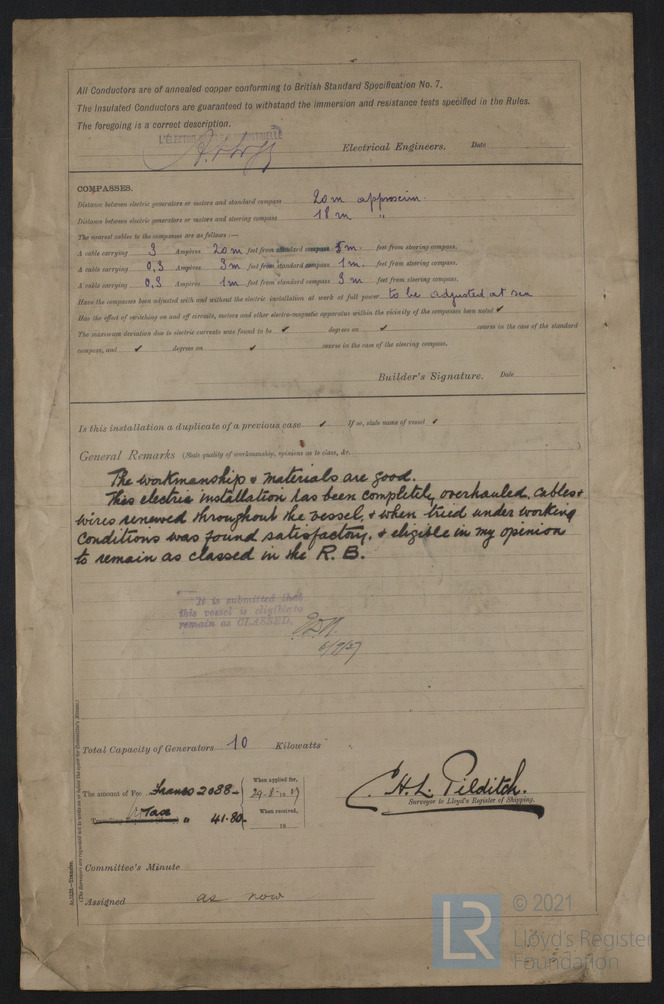 All Conductors are of annealed copper conforming to British Standard Specification No. 7.
The Insulated Conductors are guaranteed to withstand the immersion and resistance tests specified in the Rules.
The foregoing is a correct description.
Electrical Engineers. Date
COMPASSES.
Distance between electric generators or motors and standard compass 20 m approxim.
Distance between electric generators or motors and steering compass 18 m "
The nearest cables to the compasses are as follows :—
A cable carrying 3 Ampères 20 m feet from standard compass 5 m. feet from steering compass.
A cable carrying 0,3 Ampères 3 m feet from standard compass 1 m. feet from steering compass.
A cable carrying 0,3 Ampères 1 m feet from standard compass 3 m feet from steering compass.
Have the compasses been adjusted with and without the electric installation at work at full power to be adjusted at sea
Has the effect of switching on and off circuits, motors and other electro-magnetic apparatus within the vicinity of the compasses been noted ✓
The maximum deviation due to electric currents was found to be ✓ degrees on ✓ course in the case of the standard
compass, and ✓ degrees on ✓ course in the case of the steering compass.
Builder's Signature. Date
Is this installation a duplicate of a previous case ✓ If so, state name of vessel ✓
General Remarks (State quality of workmanship, opinions as to class, &c.
The workmanship & materials are good.
This electric installation has been completely overhauled, cables &
wires renewed throughout the vessel, & when tried under working
conditions was found satisfactory, & eligible in my opinion
to remain as classed in the R. B.
It is submitted that
this vessel is eligible to
remain as CLASSED.
6/9/27
Total Capacity of Generators 10 Kilowatts
The amount of Fee Francs 2088 - When applied for,
29-8-19 27
Tax " 41.80 - When received,
19
C. H. L. Pilditch.
Surveyor to Lloyd's Register of Shipping.
Committee's Minute
Assigned as now
(The Surveyors are requested not to write on or below the space for Committee's Minute.)
LR
© 2021
Lloyd's Register
Foundation